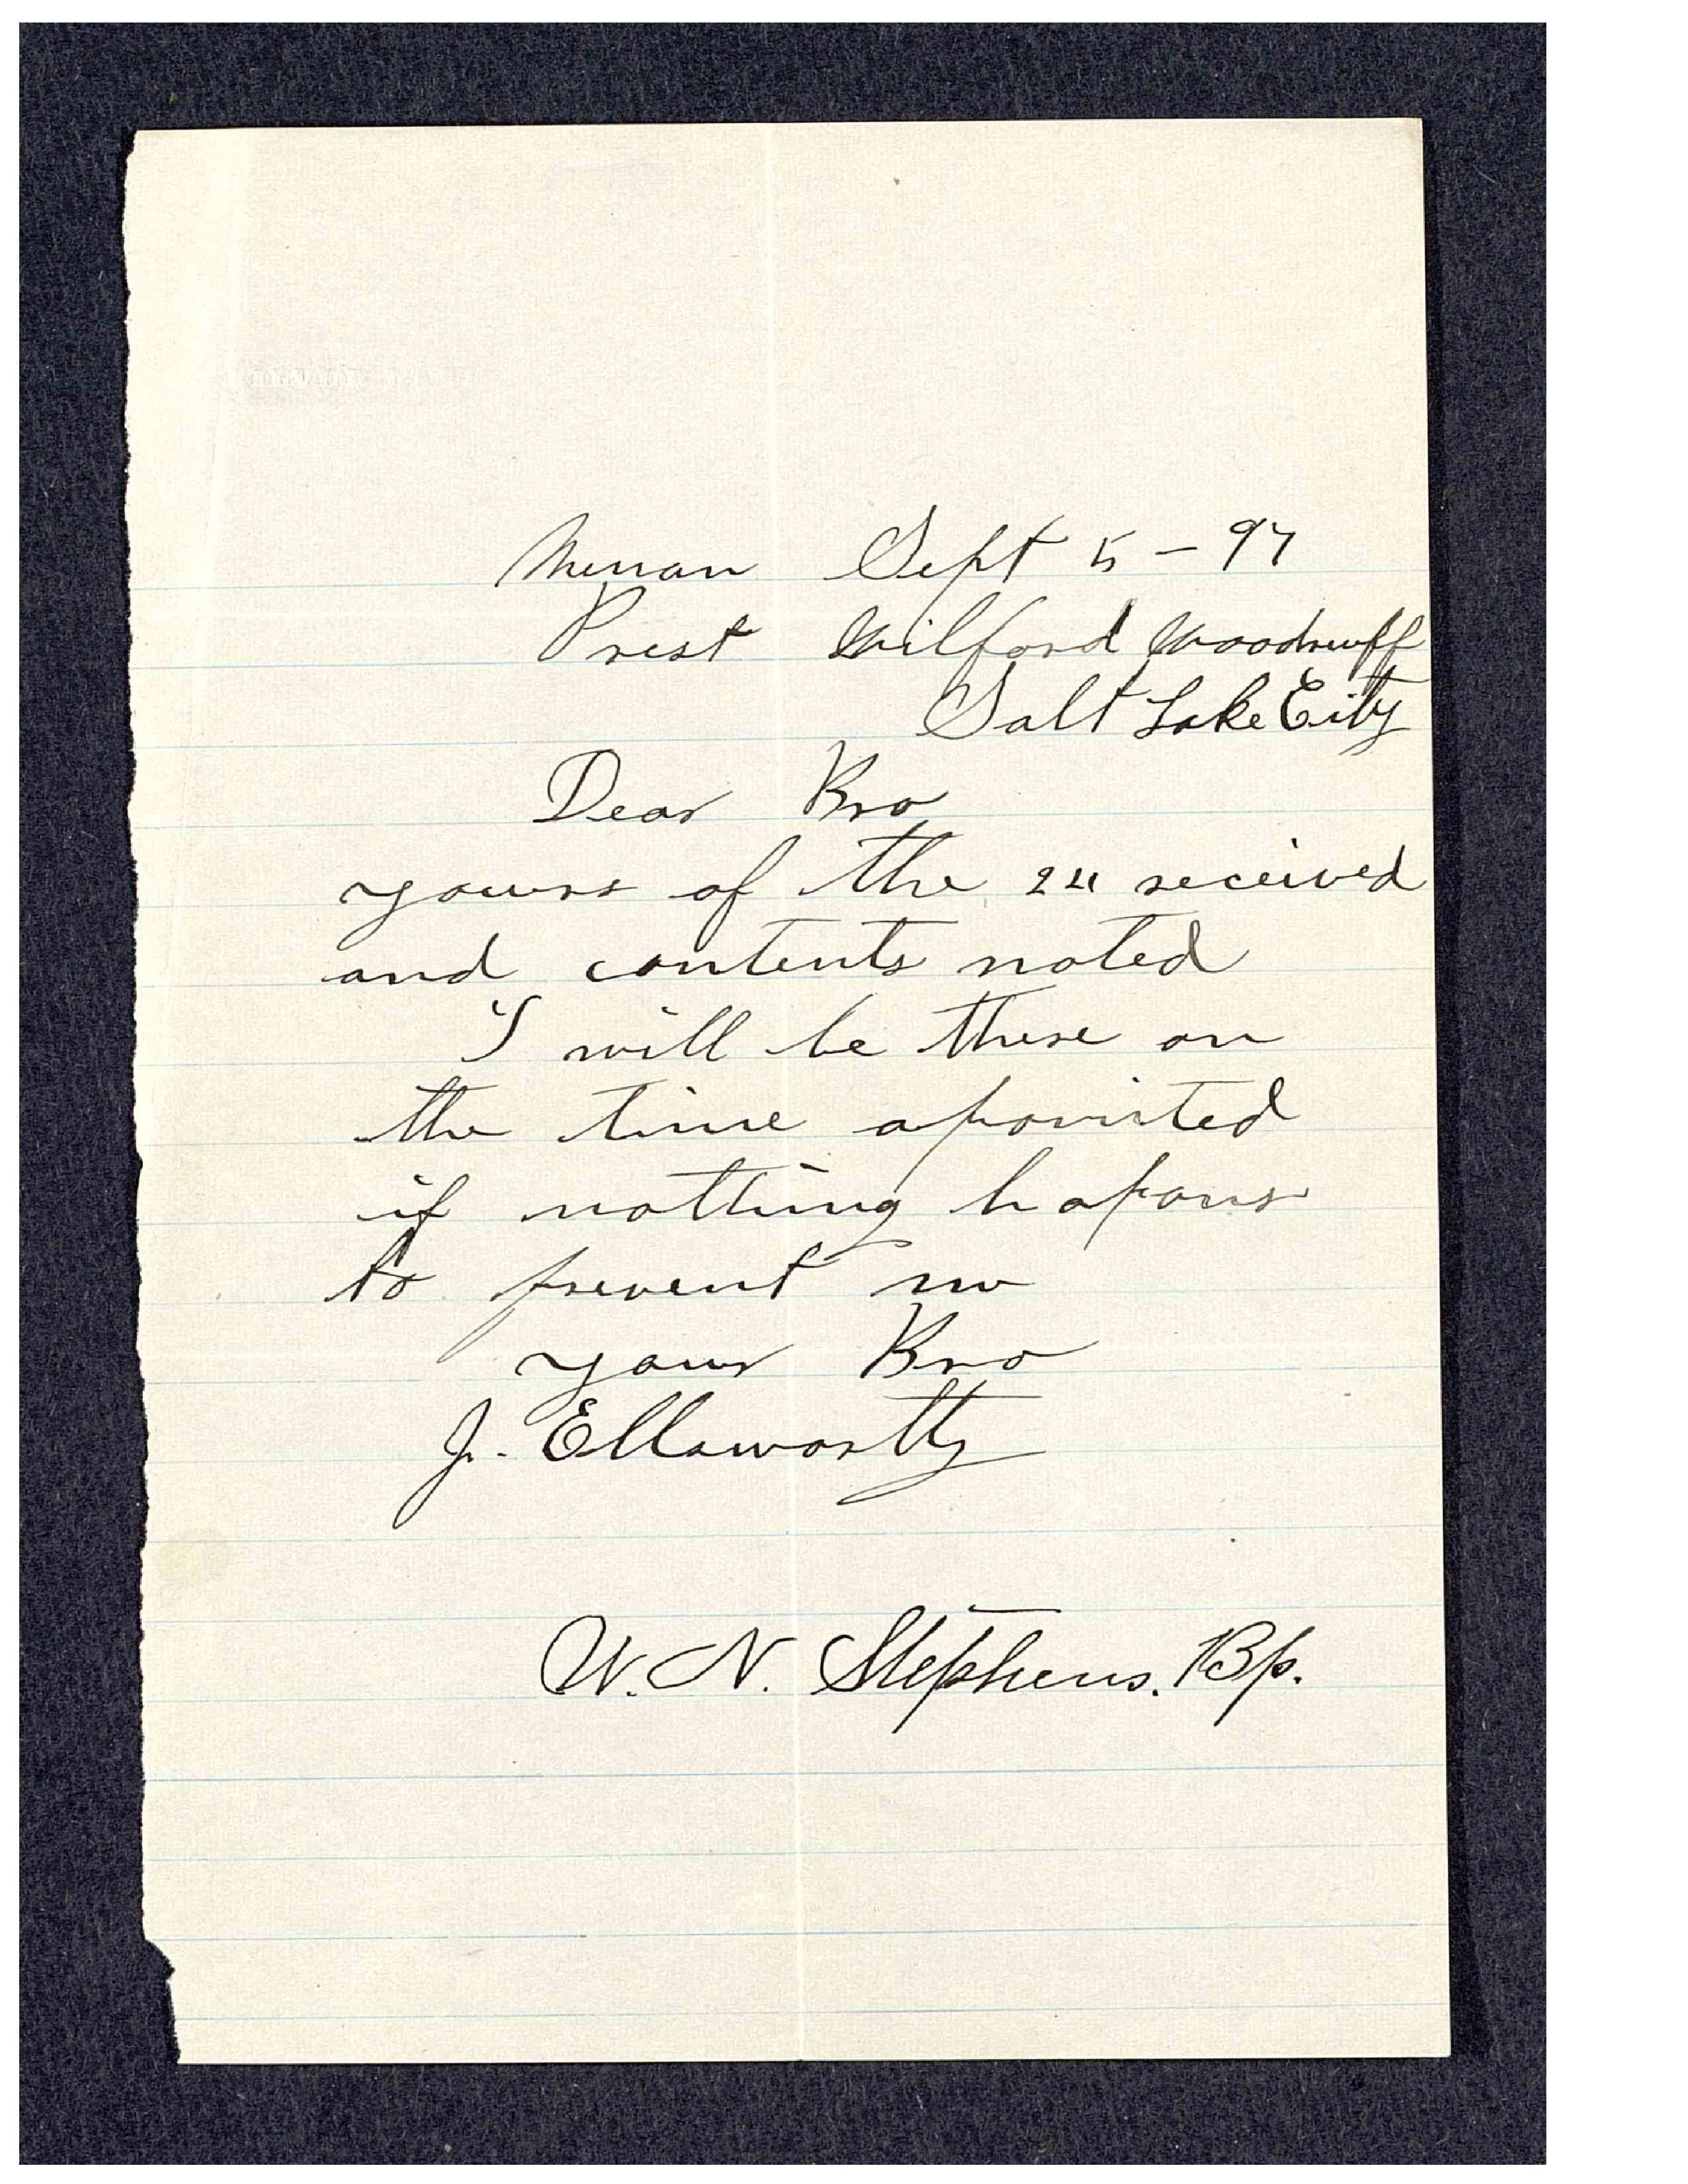 Menan Sept 5 - 97
Prest Wilford Woodruff
Salt Lake City
Dear Bro
yours of the received
and contents noted
I will be there on
the time apointed
if nothing hapons
to prevent me
your Bro
J. Ellsworth
W. N. Stephens. Bp.